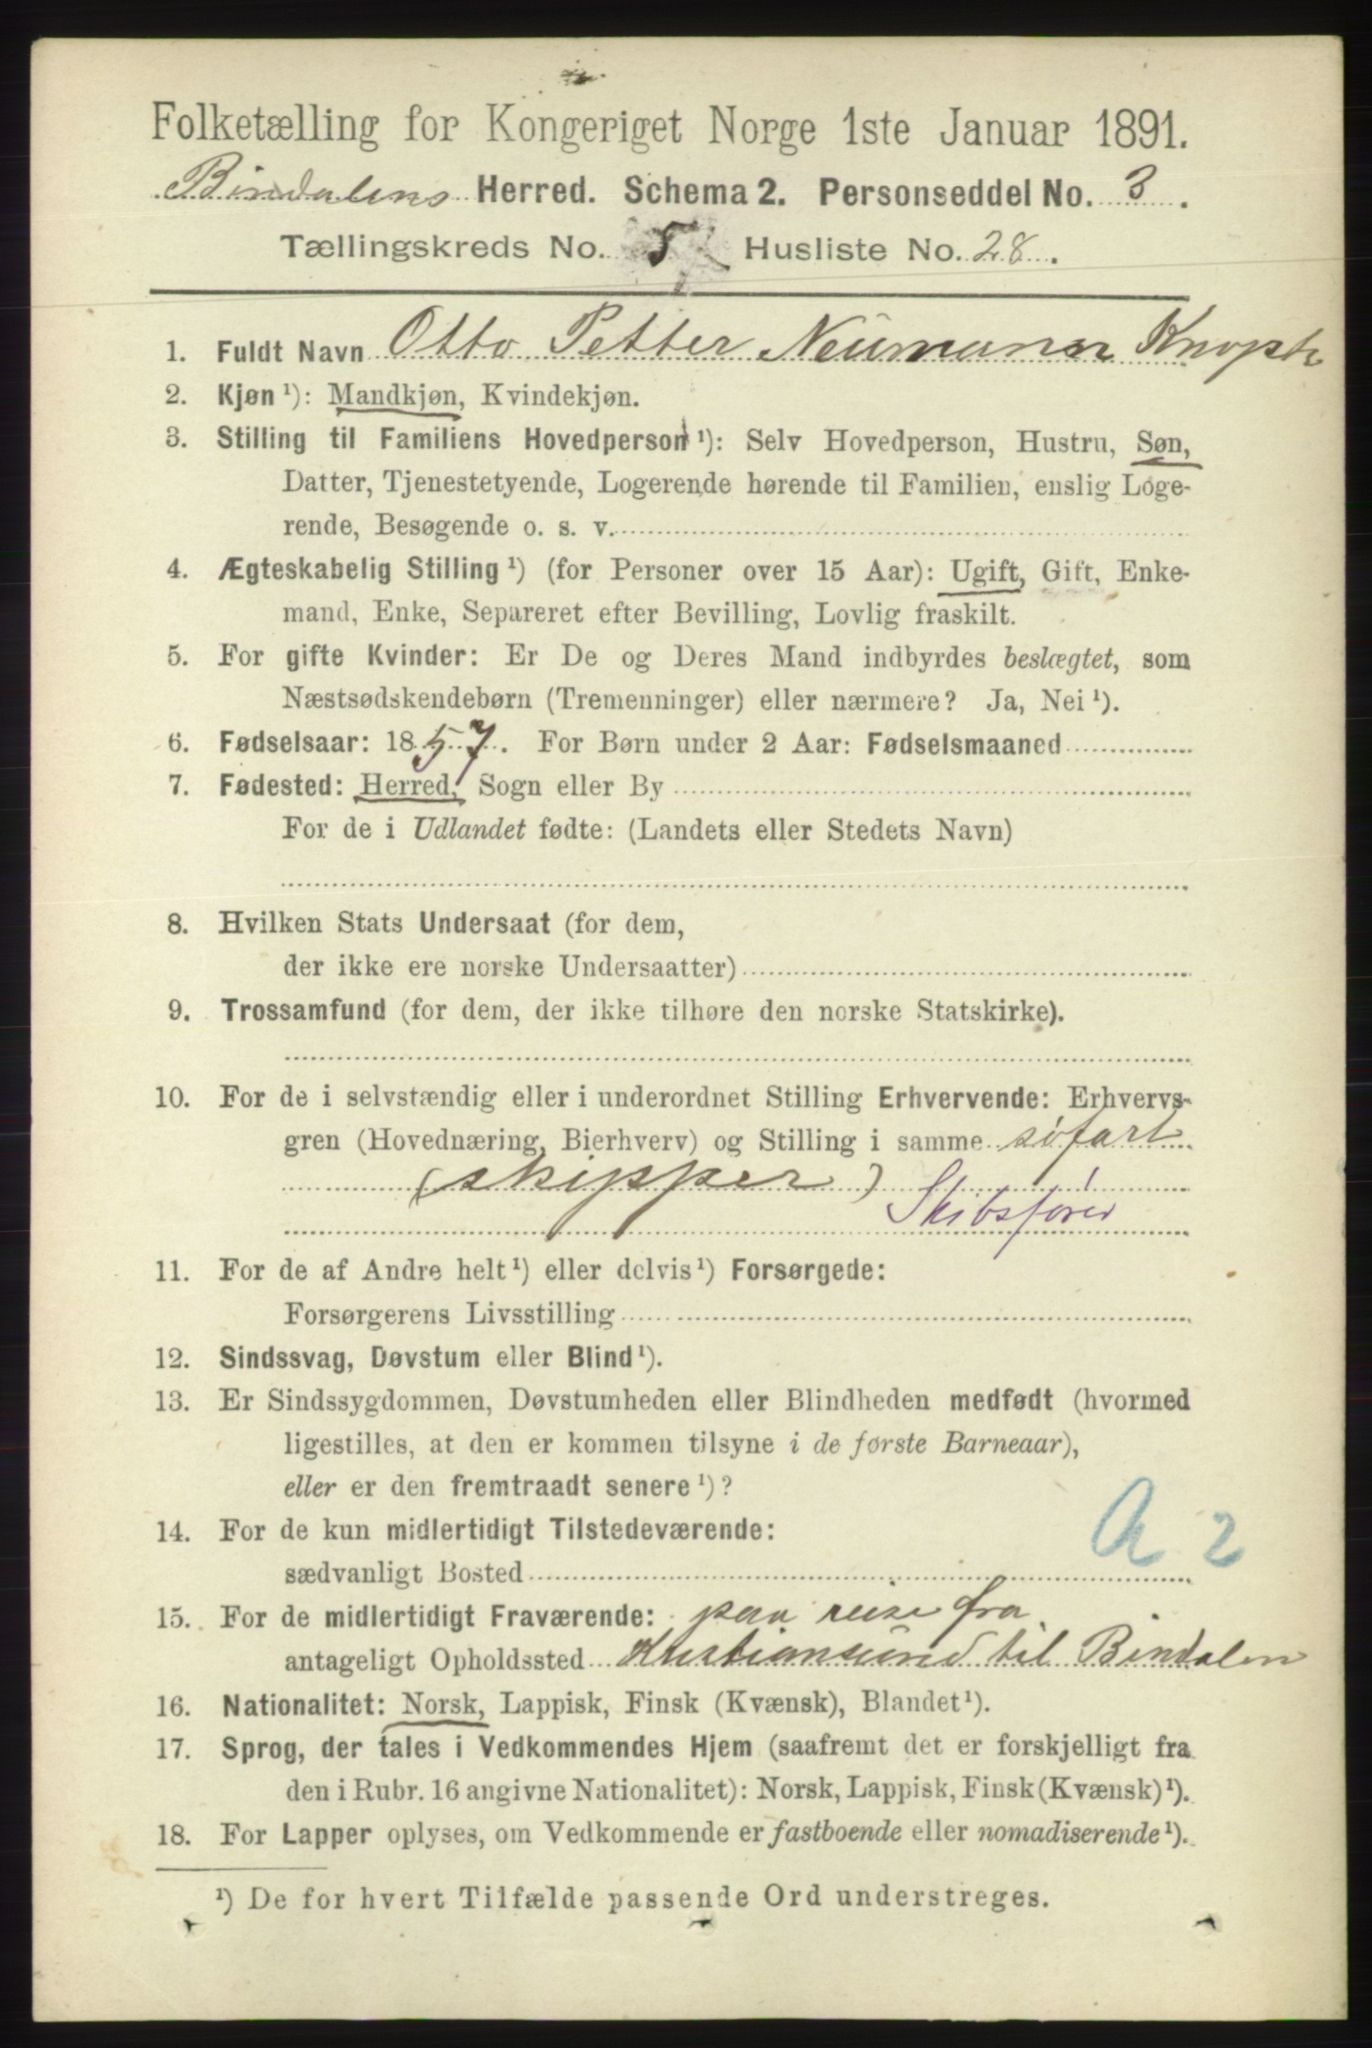 Folketælling for Kongeriget Norge 1ste Januar 1891.
Bindalens Herred. Schema 2. Personseddel No. 3.
Tællingskreds No. 5 Husliste No. 28.
1. Fuldt Navn Otto Petter Neumann Knoph
2. Kjøn ¹): Mandkjøn, Kvindekjøn.
3. Stilling til Familiens Hovedperson ¹): Selv Hovedperson, Hustru, Søn,
Datter, Tjenestetyende, Logerende hørende til Familien, enslig Loge-
rende, Besøgende o. s. v.
4. Ægteskabelig Stilling ¹) (for Personer over 15 Aar): Ugift, Gift, Enke-
mand, Enke, Separeret efter Bevilling, Lovlig fraskilt.
5. For gifte Kvinder: Er De og Deres Mand indbyrdes beslægtet, som
Næstsødskendebørn (Tremenninger) eller nærmere? Ja, Nei ¹).
6. Fødselsaar: 1857. For Børn under 2 Aar: Fødselsmaaned
7. Fødested: Herred, Sogn eller By
For de i Udlandet fødte: (Landets eller Stedets Navn)
8. Hvilken Stats Undersaat (for dem,
der ikke ere norske Undersaatter)
9. Trossamfund (for dem, der ikke tilhøre den norske Statskirke).
10. For de i selvstændig eller i underordnet Stilling Erhvervende: Erhvervs-
gren (Hovednæring, Bierhverv) og Stilling i samme søfart
(skipper) Skibsfører
11. For de af Andre helt ¹) eller delvis ¹) Forsørgede:
Forsørgerens Livsstilling
12. Sindssvag, Døvstum eller Blind ¹).
13. Er Sindssygdommen, Døvstumheden eller Blindheden medfødt (hvormed
ligestilles, at den er kommen tilsyne i de første Barneaar),
eller er den fremtraadt senere ¹)?
A 2
14. For de kun midlertidigt Tilstedeværende:
sædvanligt Bosted
15. For de midlertidigt Fraværende: paa reise fra
antageligt Opholdssted Kristiansund til Bindalen
16. Nationalitet: Norsk, Lappisk, Finsk (Kvænsk), Blandet ¹).
17. Sprog, der tales i Vedkommendes Hjem (saafremt det er forskjelligt fra
den i Rubr. 16 angivne Nationalitet): Norsk, Lappisk, Finsk (Kvænsk) ¹).
18. For Lapper oplyses, om Vedkommende er fastboende eller nomadiserende ¹).
¹) De for hvert Tilfælde passende Ord understreges.